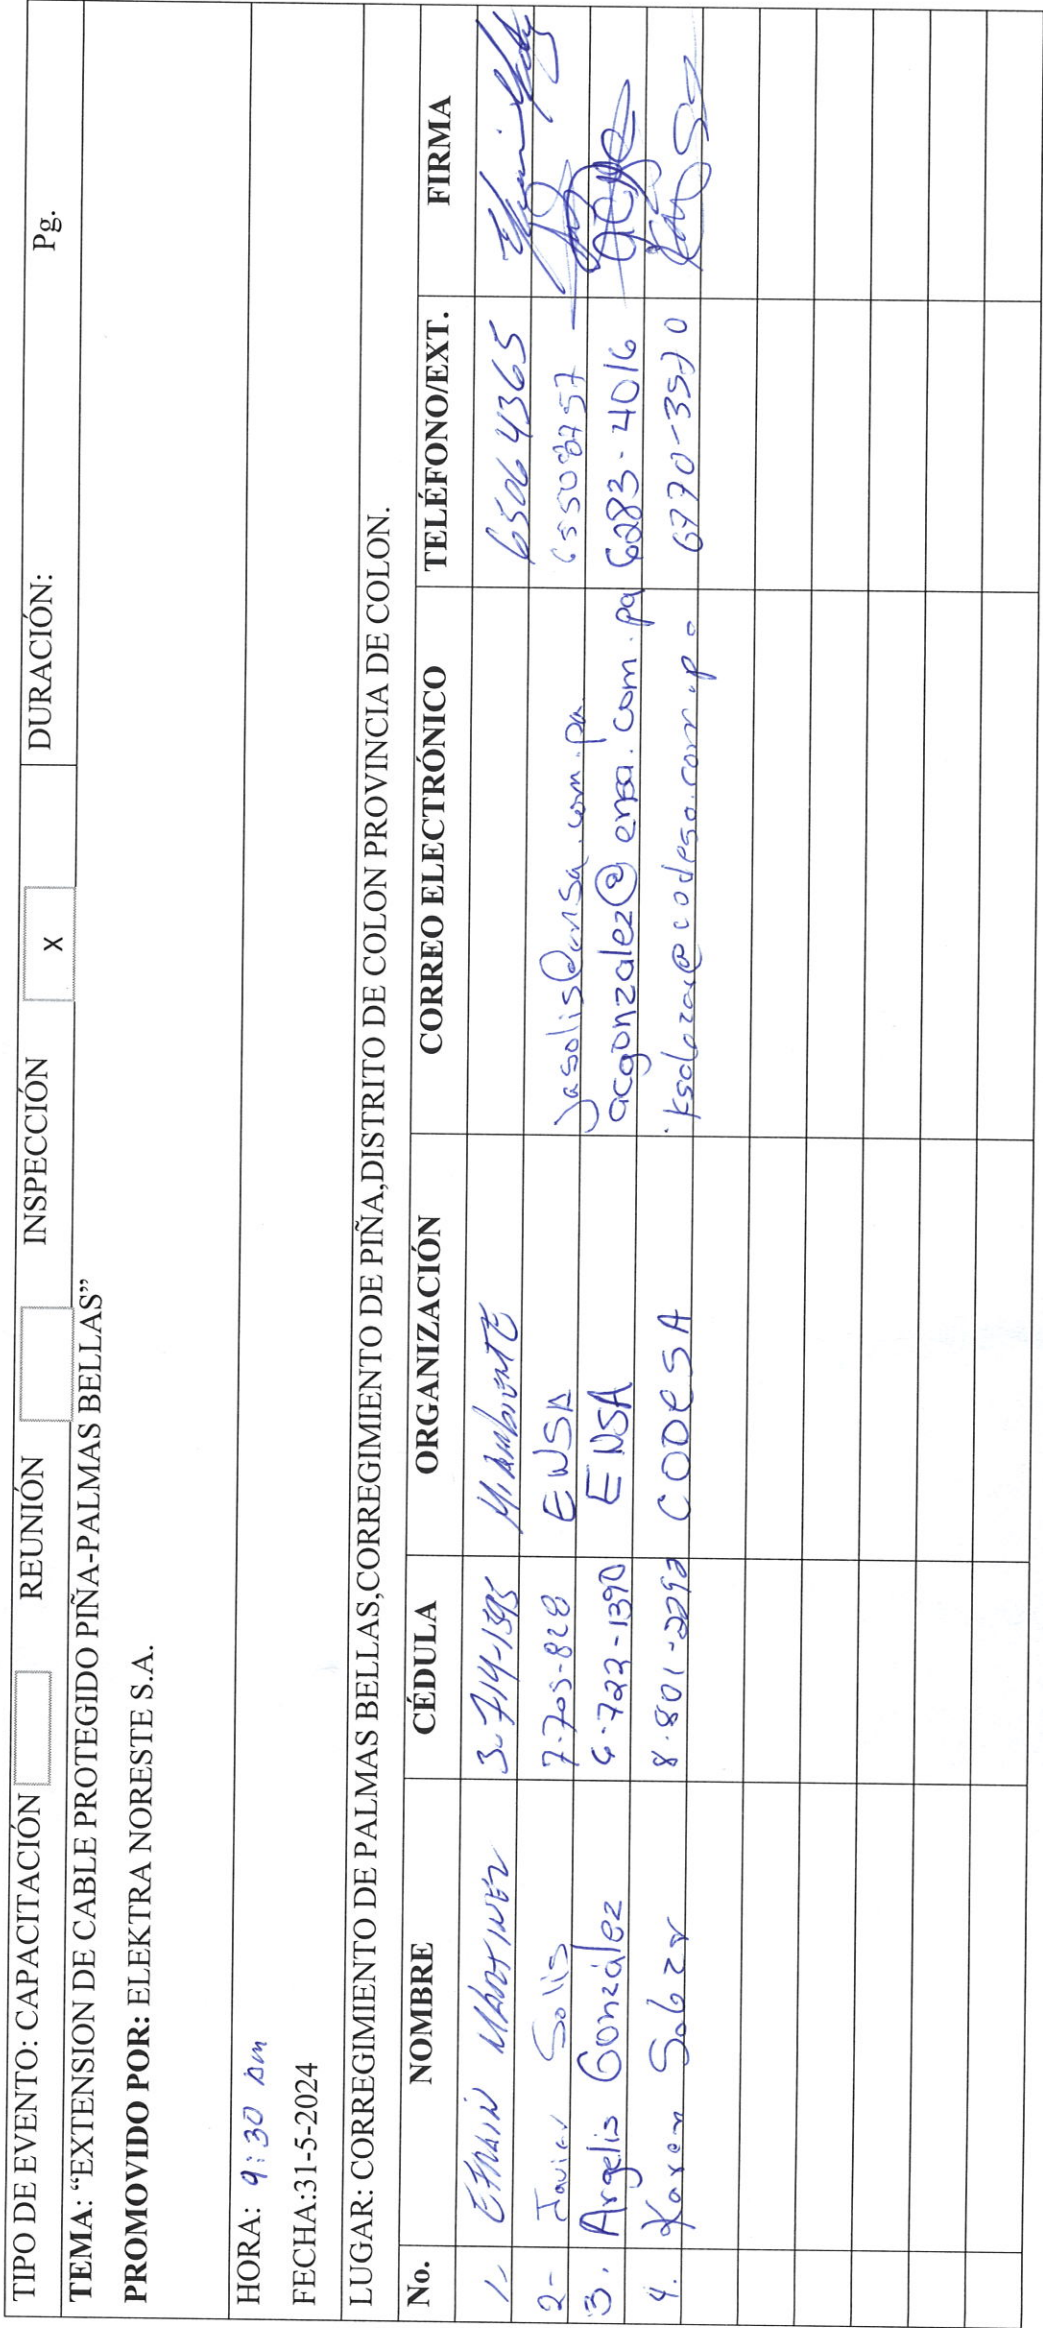 TIPO DE EVENTO: CAPACITACIÓN REUNIÓN INSPECCIÓN X DURACIÓN: Pg.
TEMA: “EXTENSION DE CABLE PROTEGIDO PIÑA-PALMAS BELLAS”
PROMOVIDO POR: ELEKTRA NORESTE S.A.
HORA: 9:30 am
FECHA:31-5-2024
LUGAR: CORREGIMIENTO DE PALMAS BELLAS,CORREGIMIENTO DE PIÑA,DISTRITO DE COLON PROVINCIA DE COLON.
No. NOMBRE CÉDULA ORGANIZACIÓN CORREO ELECTRÓNICO TELÉFONO/EXT. FIRMA
1- EFRAIN MARTINEZ 3-714-1395 MiAmbiente 6506 4365
2- Javier Solis 7-705-828 ENSA jasolis@ensa.com.pa
3. Argelis González 6-722-1390 ENSA acgonzalez@ensa.com.pa 6283-4016
4. Karen Salazar CODESA 6770-3570